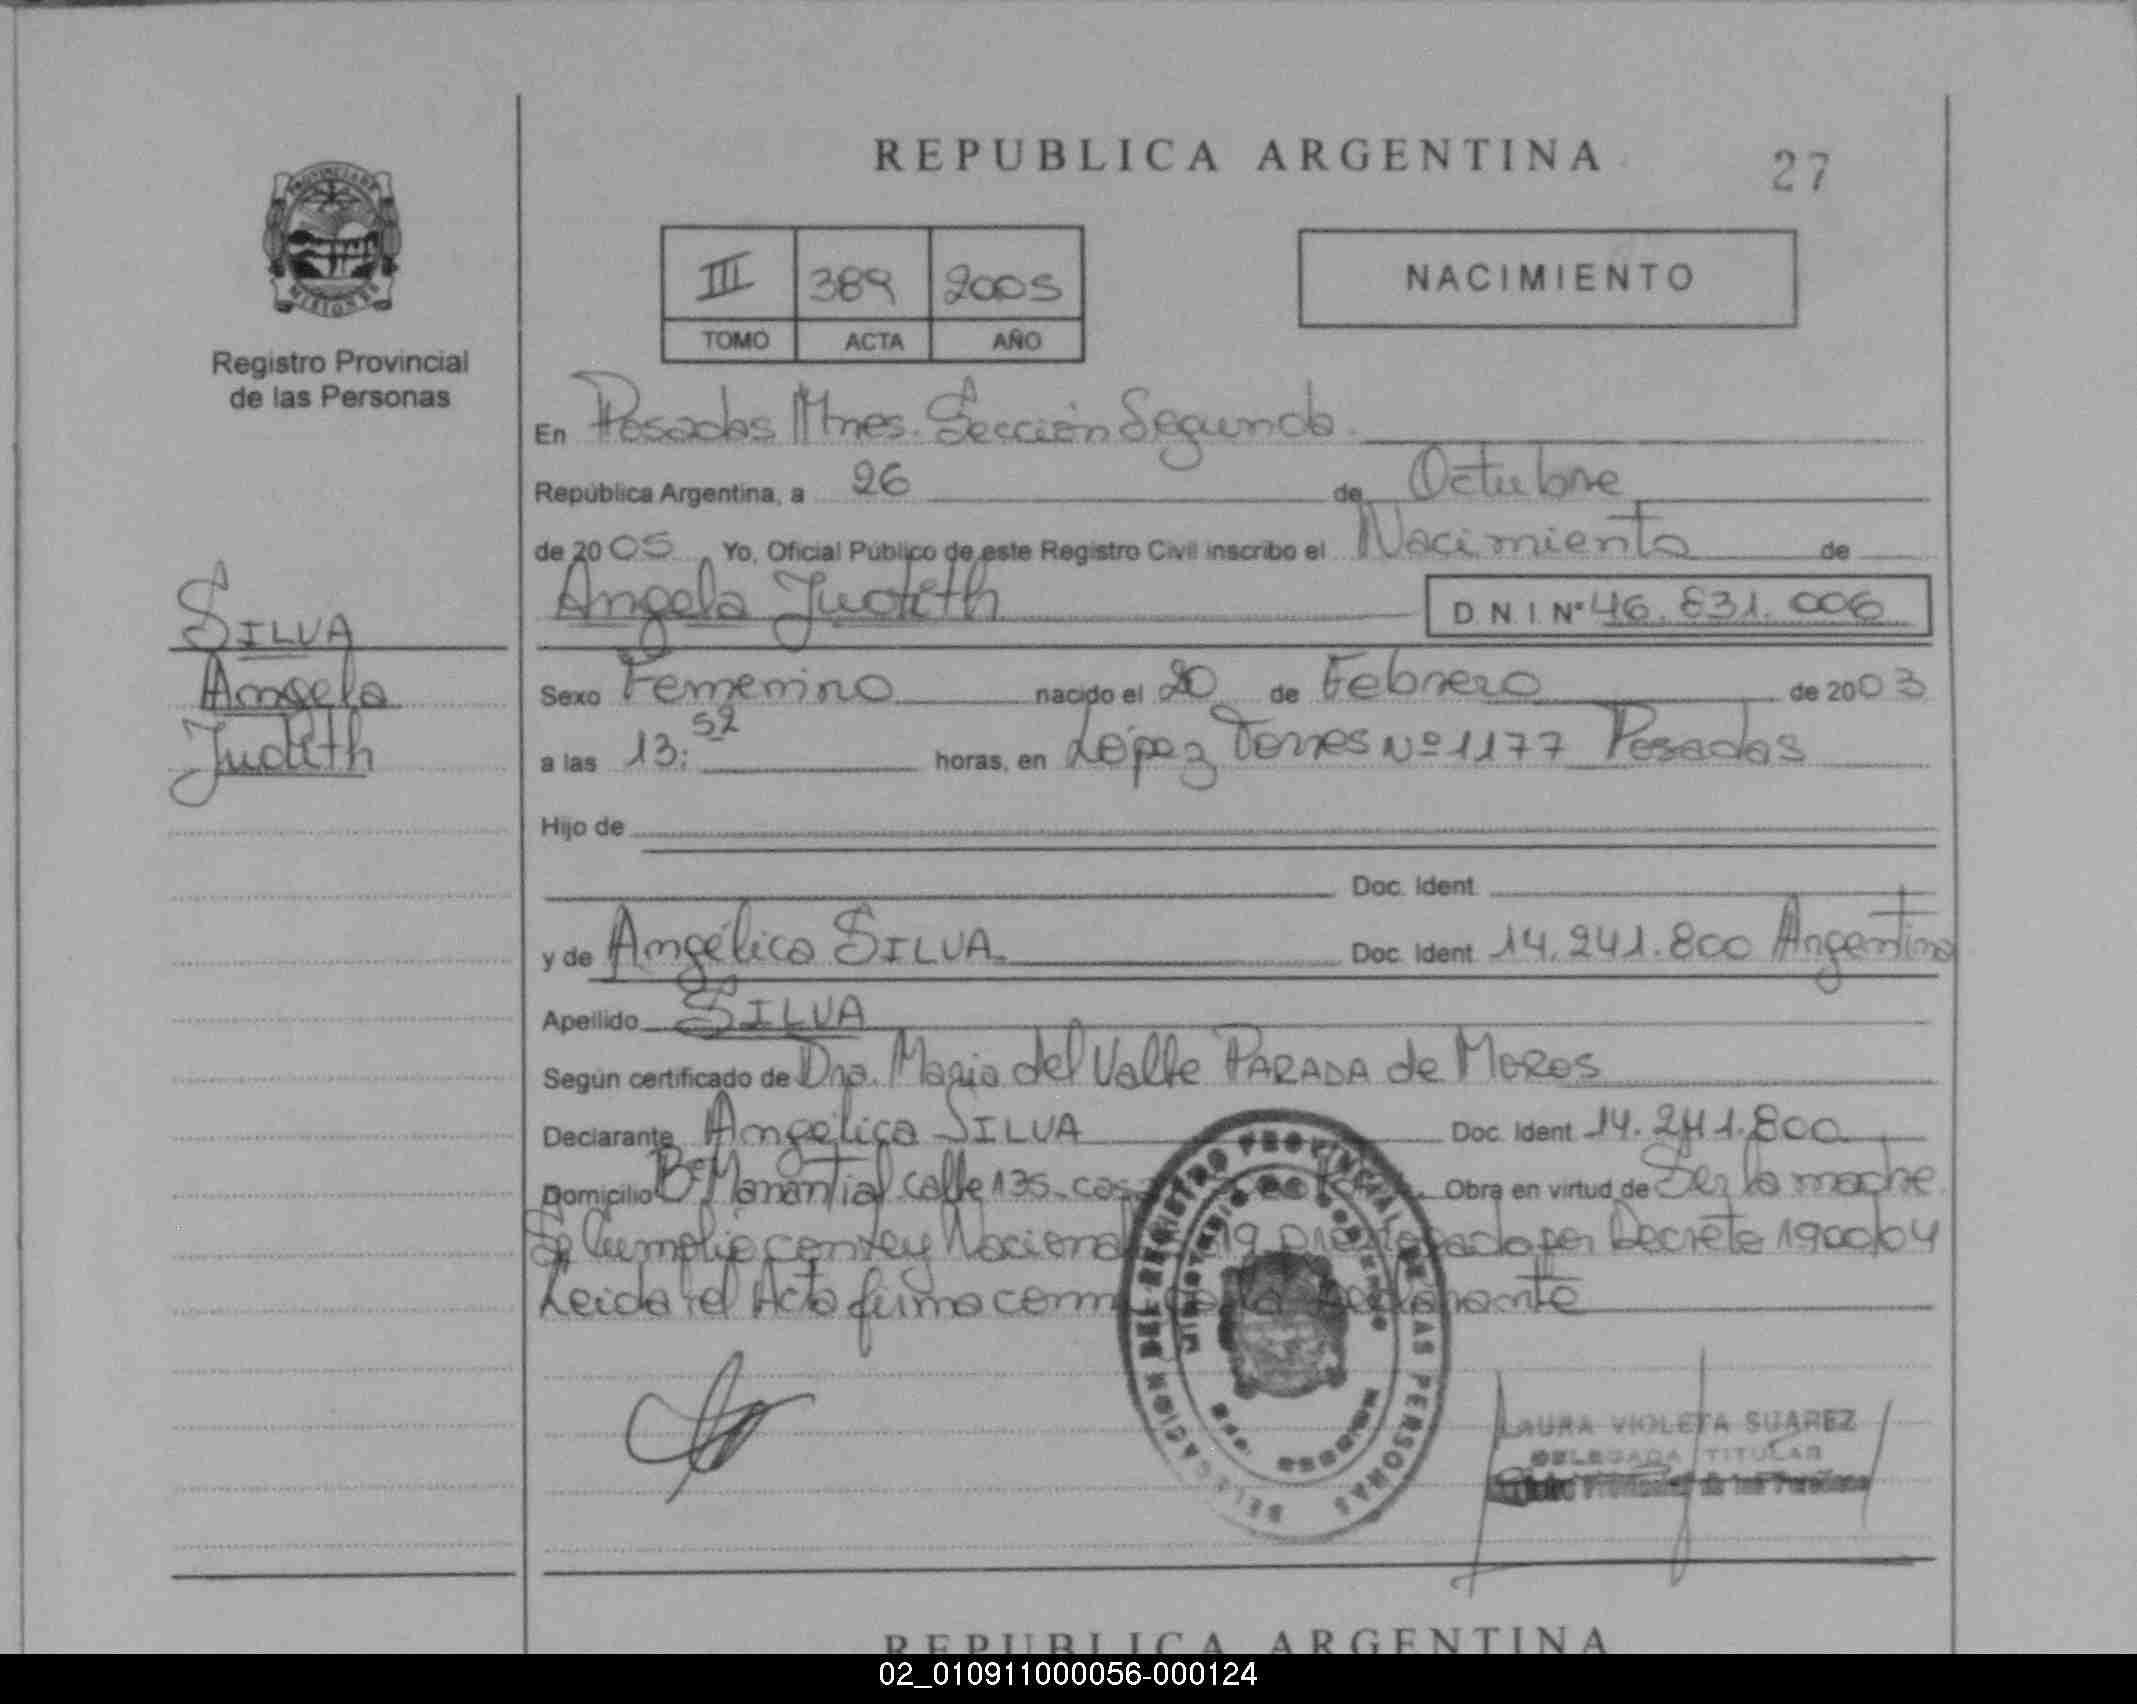 REPUBLICA ARGENTINA
27
III 389 2005
TOMO ACTA AÑO
NACIMIENTO
PROVINCIA DE
MISIONES
Registro Provincial
de las Personas
En Posadas Mnes. Sección Segunda
República Argentina, a 26 de Octubre
de 2005 Yo, Oficial Público de este Registro Civil inscribo el Nacimiento de
Angela Judith D.N.I. Nº 46.831.006
SILVA
Angela
Judith
Sexo Femenino nacido el 20 de Febrero de 2003
a las 13:52 horas, en López Torres Nº 1177 Posadas
Hijo de
Doc. Ident.
y de Angélica SILVA Doc. Ident. 14.241.800 Argentina
Apellido SILVA
Según certificado de Dra. Maria del Valle PARADA de MOROS
Declarante Angélica SILVA Doc. Ident. 14.241.800
Domicilio Bº Manantial calle 135 Obra en virtud de Ser la madre
Se Cumplio con Ley Nacional por Decreto 1900/04
Leida el Acta firma
DELEGACION DEL REGISTRO PROVINCIAL DE LAS PERSONAS
MINISTERIO DE GOBIERNO
LAURA VIOLETA SUAREZ
DELEGADA TITULAR
Provincial de las Personas
REPUBLICA ARGENTINA
02_010911000056-000124